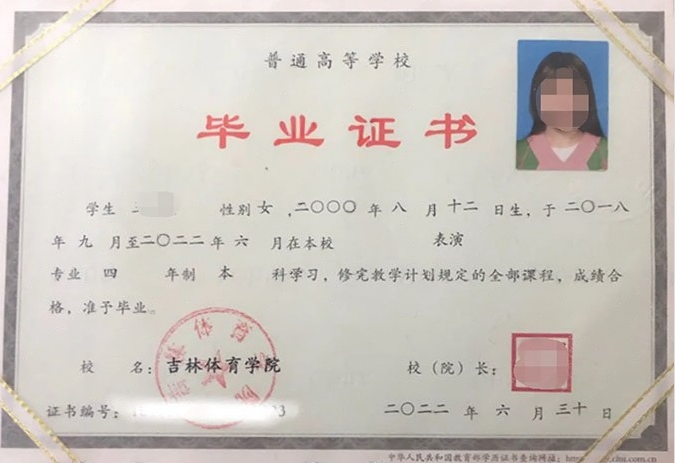 普通高等学校
毕业证书
学生 性别 女 ,二〇〇〇 年 八 月 十二 日生, 于 二〇一八
年 九 月至二〇二二年 六 月在本校 表演
专业 四 年制 本 科学习, 修完教学计划规定的全部课程, 成绩合
格, 准予毕业。
校 名: 吉林体育学院 校(院)长:
证书编号: 二〇二二 年 六 月 三十 日
中华人民共和国教育部学历证书查询网址: